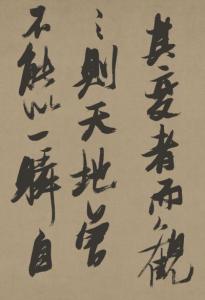 其變者而觀
之則天地曾
不能以一瞬自